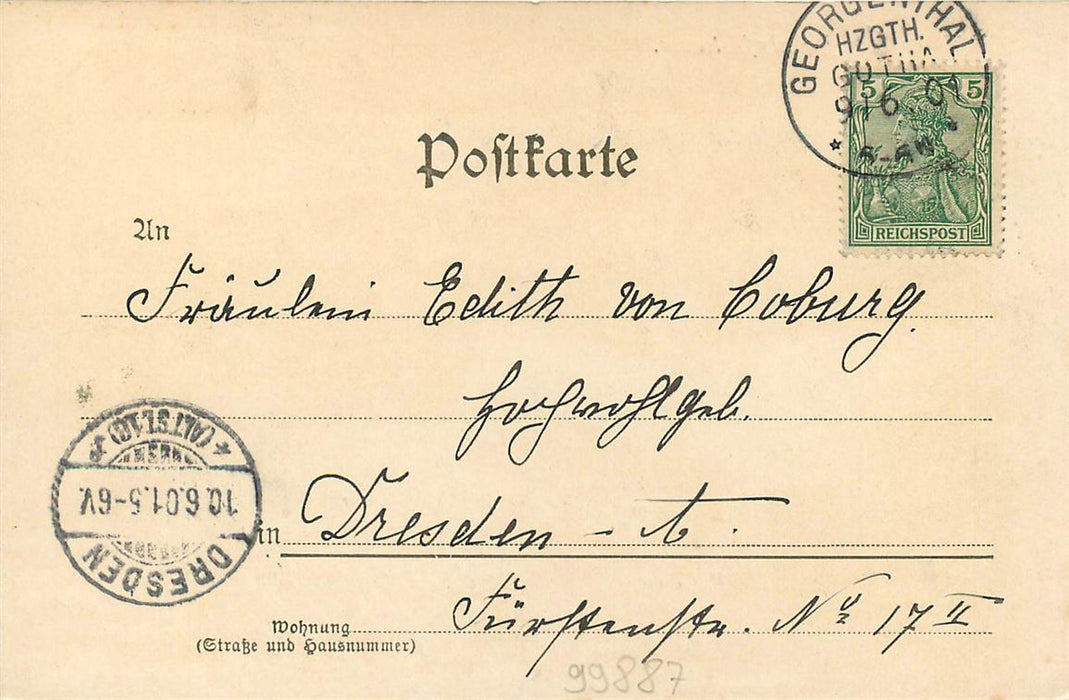 GEORGENTHAL
HZGTH.
GOTHA
9 6 01
5 5
REICHSPOST
Postkarte
An
Fräulein Edith von Coburg.
Hochwohlgeb.
DRESDEN
10.6.01.5-6V.
(ALTST.16)
in Dresden - A.
Wohnung
(Straße und Hausnummer)
Fürstenstr. No 17 II
99887